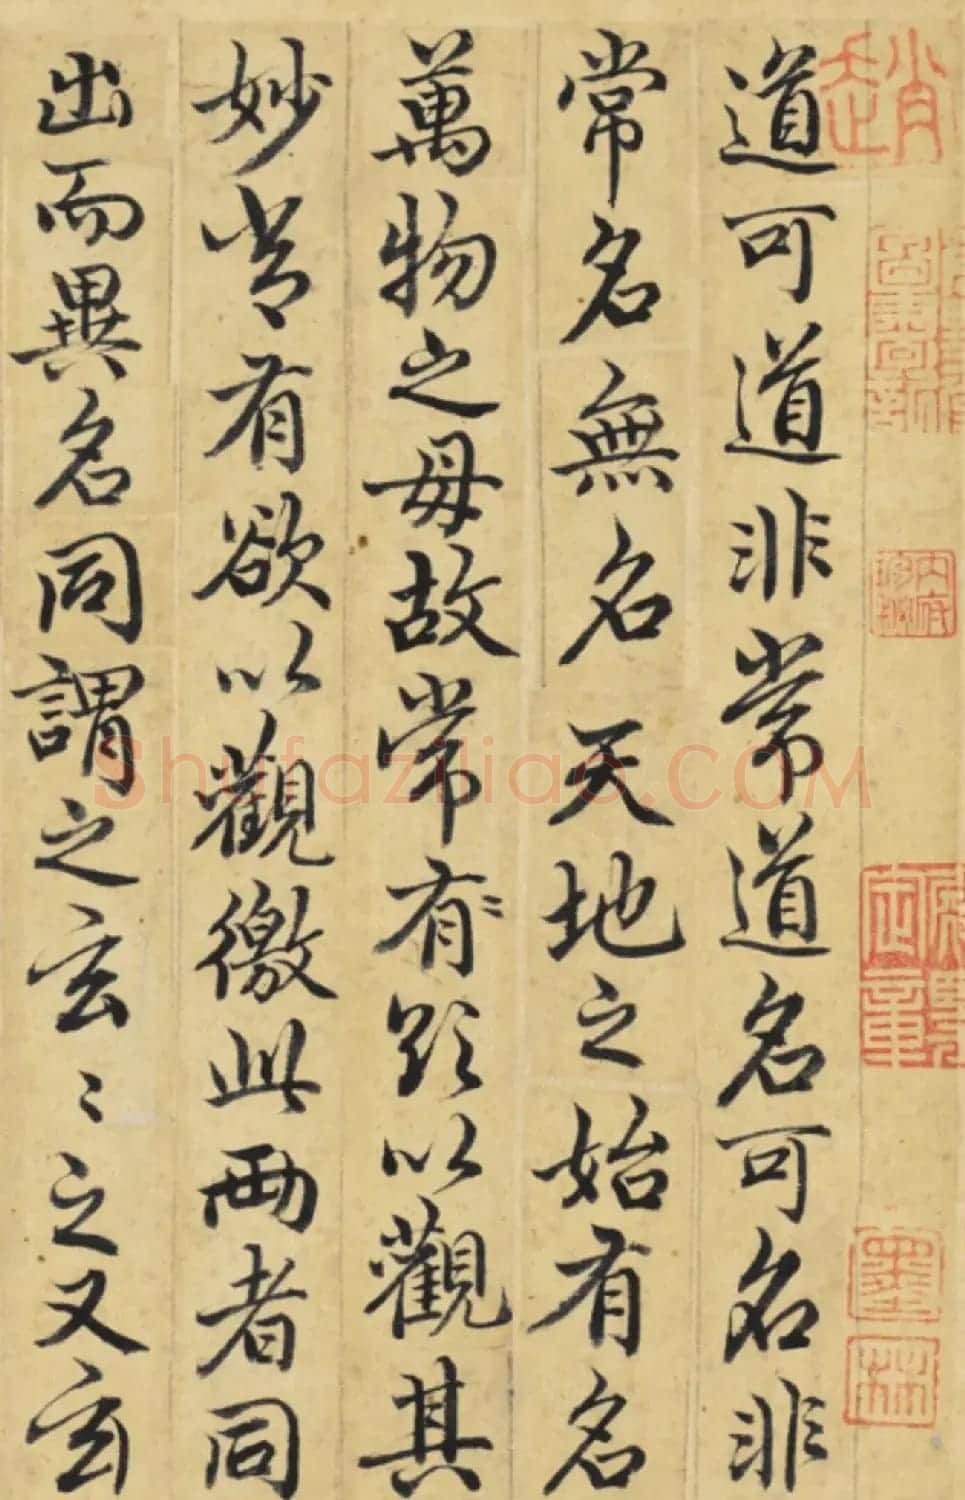 道可道非常道名可名非
常名無名天地之始有名
萬物之母故常有欲以觀其
妙常有欲以觀徼此兩者同
出而異名同謂之玄〻之又玄
趙
墨林
Shufaziliao.COM